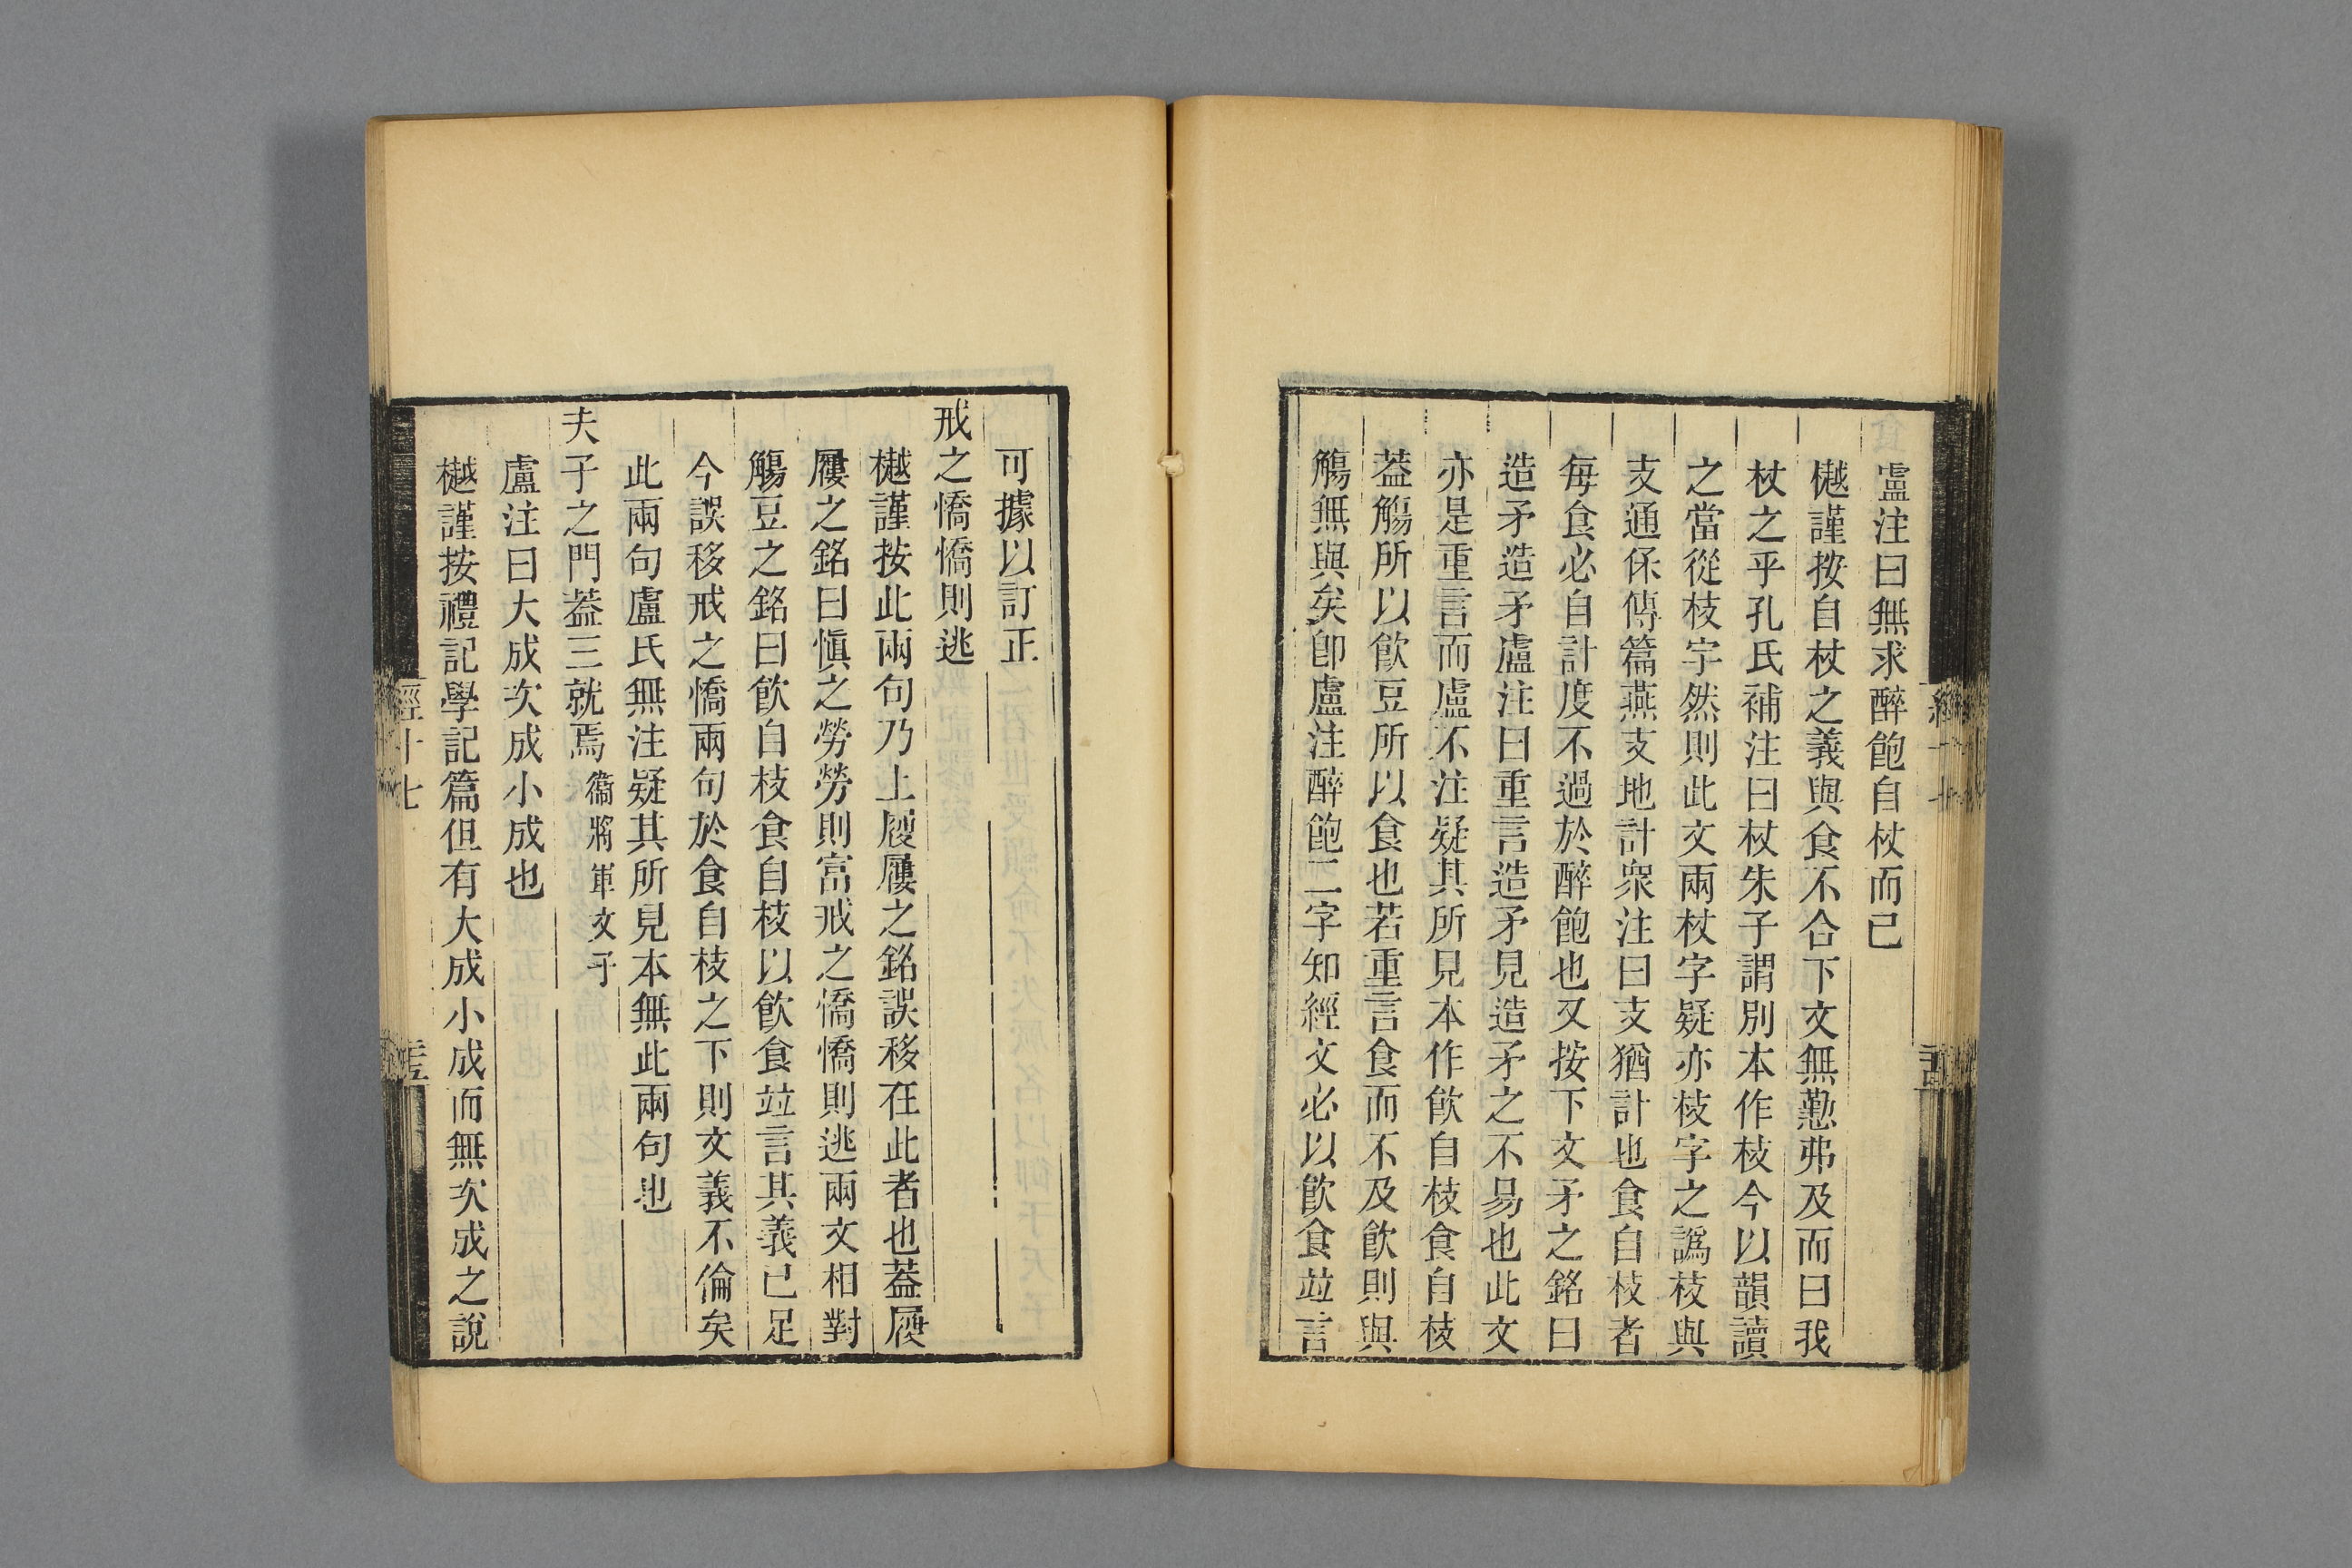 盧注曰無求醉飽自杖而已
樾謹按自杖之義與食不合下文無懃弗及而曰我
杖之乎孔氏補注曰杖朱子謂別本作枝今以韻讀
之當從枝字然則此文兩杖字疑亦枝字之譌枝與
支通保傅篇燕支地計衆注曰支猶計也食自枝者
每食必自計度不過於醉飽也又按下文矛之銘曰
造矛造矛盧注曰重言造矛見造矛之不易也此文
亦是重言而盧不注疑其所見本作飮自枝食自枝
葢觴所以飮豆所以食也若重言食而不及飮則與
觴無與矣卽盧注醉飽二字知經文必以飮食竝言
可據以訂正
戒之憍憍則逃
樾謹按此兩句乃上屨屨之銘誤移在此者也葢屨
屨之銘曰愼之勞勞則富戒之憍憍則逃兩文相對
觴豆之銘曰飮自枝食自枝以飮食竝言其義已足
今誤移戒之憍兩句於食自枝之下則文義不倫矣
此兩句盧氏無注疑其所見本無此兩句也
夫子之門葢三就焉 衞將軍文子
盧注曰大成次成小成也
樾謹按禮記學記篇但有大成小成而無次成之說
經十七